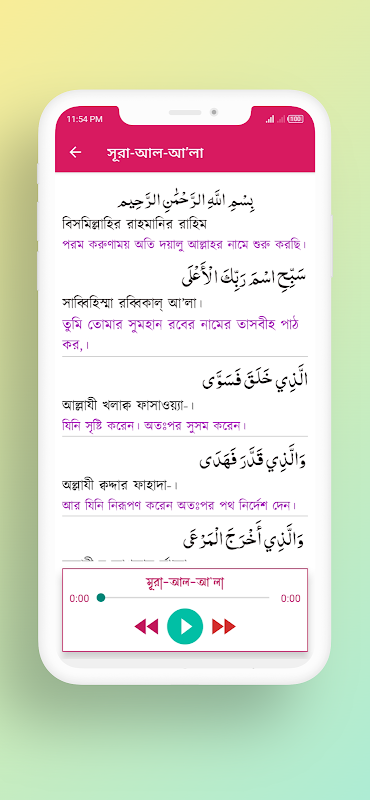 11:54 PM
সূরা-আল-আ'লা
بِسْمِ اللَّهِ الرَّحْمَٰنِ الرَّحِيم
বিসমিল্লাহির রাহমানির রাহিম
পরম করুণাময় অতি দয়ালু আল্লাহর নামে শুরু করছি।
سَبِّحِ اسْمَ رَبِّكَ الْأَعْلَى
সাব্বিহিস্মা রব্বিকাল্ আ'লা।
তুমি তোমার সুমহান রবের নামের তাসবীহ পাঠ
কর,।
الَّذِي خَلَقَ فَسَوَّى
আল্লাযী খলাক্ব ফাসাওয়্যা-।
যিনি সৃষ্টি করেন। অতঃপর সুসম করেন।
وَالَّذِي قَدَّرَ فَهَدَى
অল্লাযী ক্বদ্দার ফাহাদা-।
আর যিনি নিরূপণ করেন অতঃপর পথ নির্দেশ দেন।
وَالَّذِي أَخْرَجَ الْمَرْعَى
সূরা-আল-আ'লা
0:00 0:00